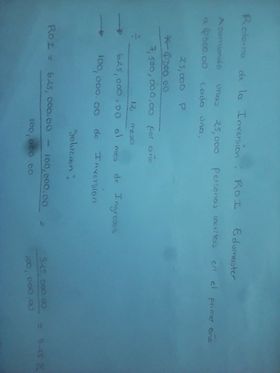 Retorno de la Inversión - ROI Edumaster
Asumiendo unas 25,000 personas inscritas en el primer año
a $300.00 cada una.
25,000 P
x $300.00
7,500,000.00 por año
÷ 12 meses
→ 625,000.00 al mes de Ingresos
→ 100,000.00 de Inversión
Solución:
ROI = 625,000.00 - 100,000.00 = 525,000.00 = 5.25 %
100,000.00 100,000.00